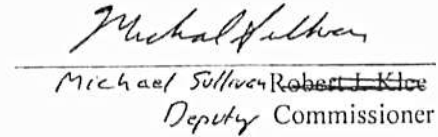 Michael Sullivan
Michael Sullivan Robert J. Klee
Deputy Commissioner